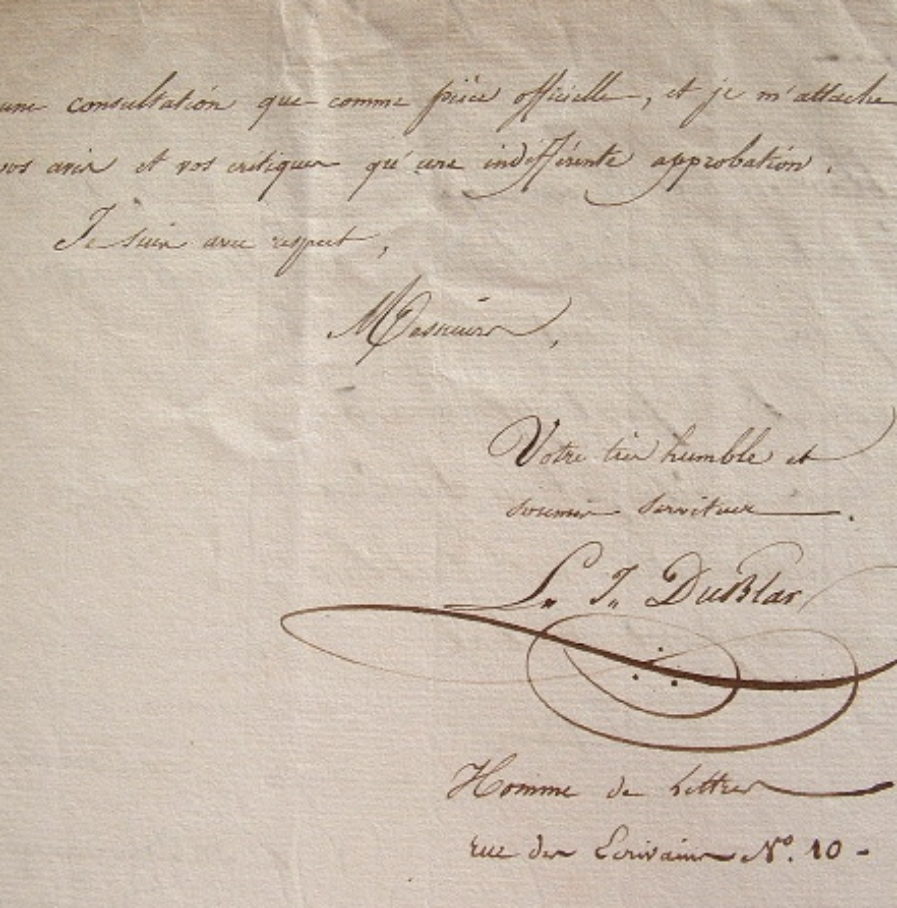 une consultation que comme pièce officielle, et je m'attache
vos avis et vos critiques qu'une indifférente approbation.
Je suis avec respect,
Messieurs,
Votre très humble et
soumis serviteur.
L. J. DuBlar
Homme de Lettres
rue des Ecrivains N.º 10 -